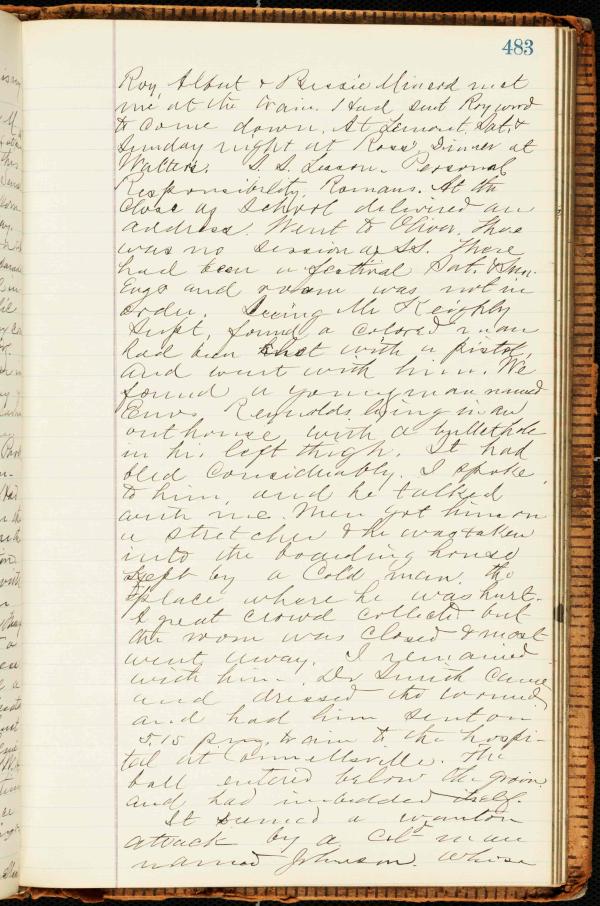 483
Roy, Albert & Bessie Minerd met
me at the train. I Had sent Roy word
to come down. At Lemont, Sat. &
Sunday night at Ross, Dinner at
Walters. S. S. Lesson. Personal
Responsibility. Romans. At the
close of School delivered an
address. Went to Oliver, there
was no session of S.S. There
had been a festival Sat. & Sun.
Evgs and room was not in
order. Seeing Mr Keighly
Supt, found a colored man
had been shot with a pistol,
and went with him. We
found a young man named
Reynolds, lying in an
outhouse with a bullethole
in his left thigh. It had
bled considerably. I spoke
to him, and he talked
with me. Men got him on
a stretcher & he was taken
into the boarding house
kept by a Cold man. the
place where he was hurt.
A great crowd collected but
the room was closed & most
went away. I remained
with him. Dr Smith came
and dressed the wound
and had him sent on
5.15 p.m. train to the hospi-
tal at Connellsville. The
ball entered below the groin
and had imbedded itself.
It seemed a wanton
attack by a Cold man
named Johnson. Whose